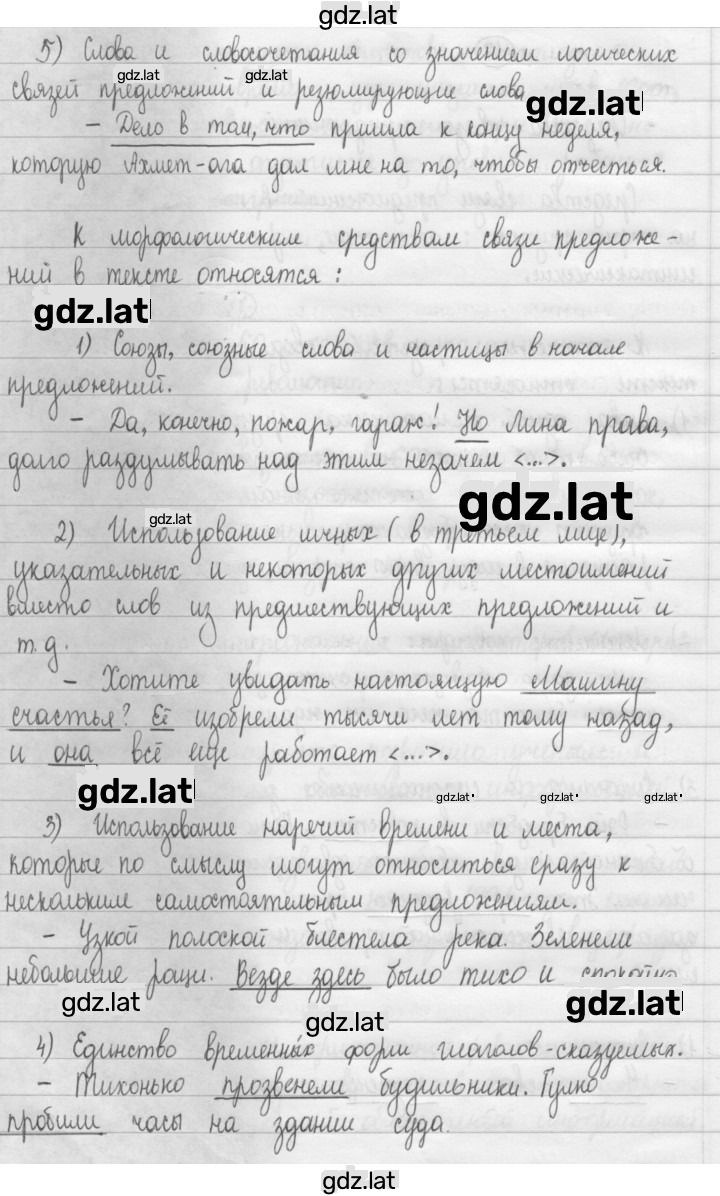 gdz.lat
5) Слова и словосочетания со значением логических
gdz.lat gdz.lat
связей предложений и резюмирующие слова
gdz.lat
– Дело в том, что пришла к концу неделя,
которую Ахмет-ага дал мне на то, чтобы отчесться.
К морфологическим средствам связи предложе-
ний в тексте относятся:
gdz.lat
1) Союзы, союзные слова и частицы в начале
предложений.
– Да, конечно, пожар, гараж! Но Лина права,
долго раздумывать над этим незачем <...>.
gdz.lat
gdz.lat
2) Использование личных (в третьем лице),
указательных и некоторых других местоимений
вместо слов из предшествующих предложений и
т.д.
– Хотите увидать настоящую Машину
счастья? Её изобрели тысячи лет тому назад,
и она всё ещё работает <...>.
gdz.lat gdz.lat gdz.lat gdz.lat
3) Использование наречий времени и места,
которые по смыслу могут относиться сразу к
нескольким самостоятельным предложениям.
– Узкой полоской блестела река. Зеленели
небольшие рощи. Везде здесь было тихо и спокойно
gdz.lat gdz.lat gdz.lat
4) Единство временных форм глаголов-сказуемых.
– Тихонько прозвенели будильники. Гулко
пробили часы на здании суда.
gdz.lat